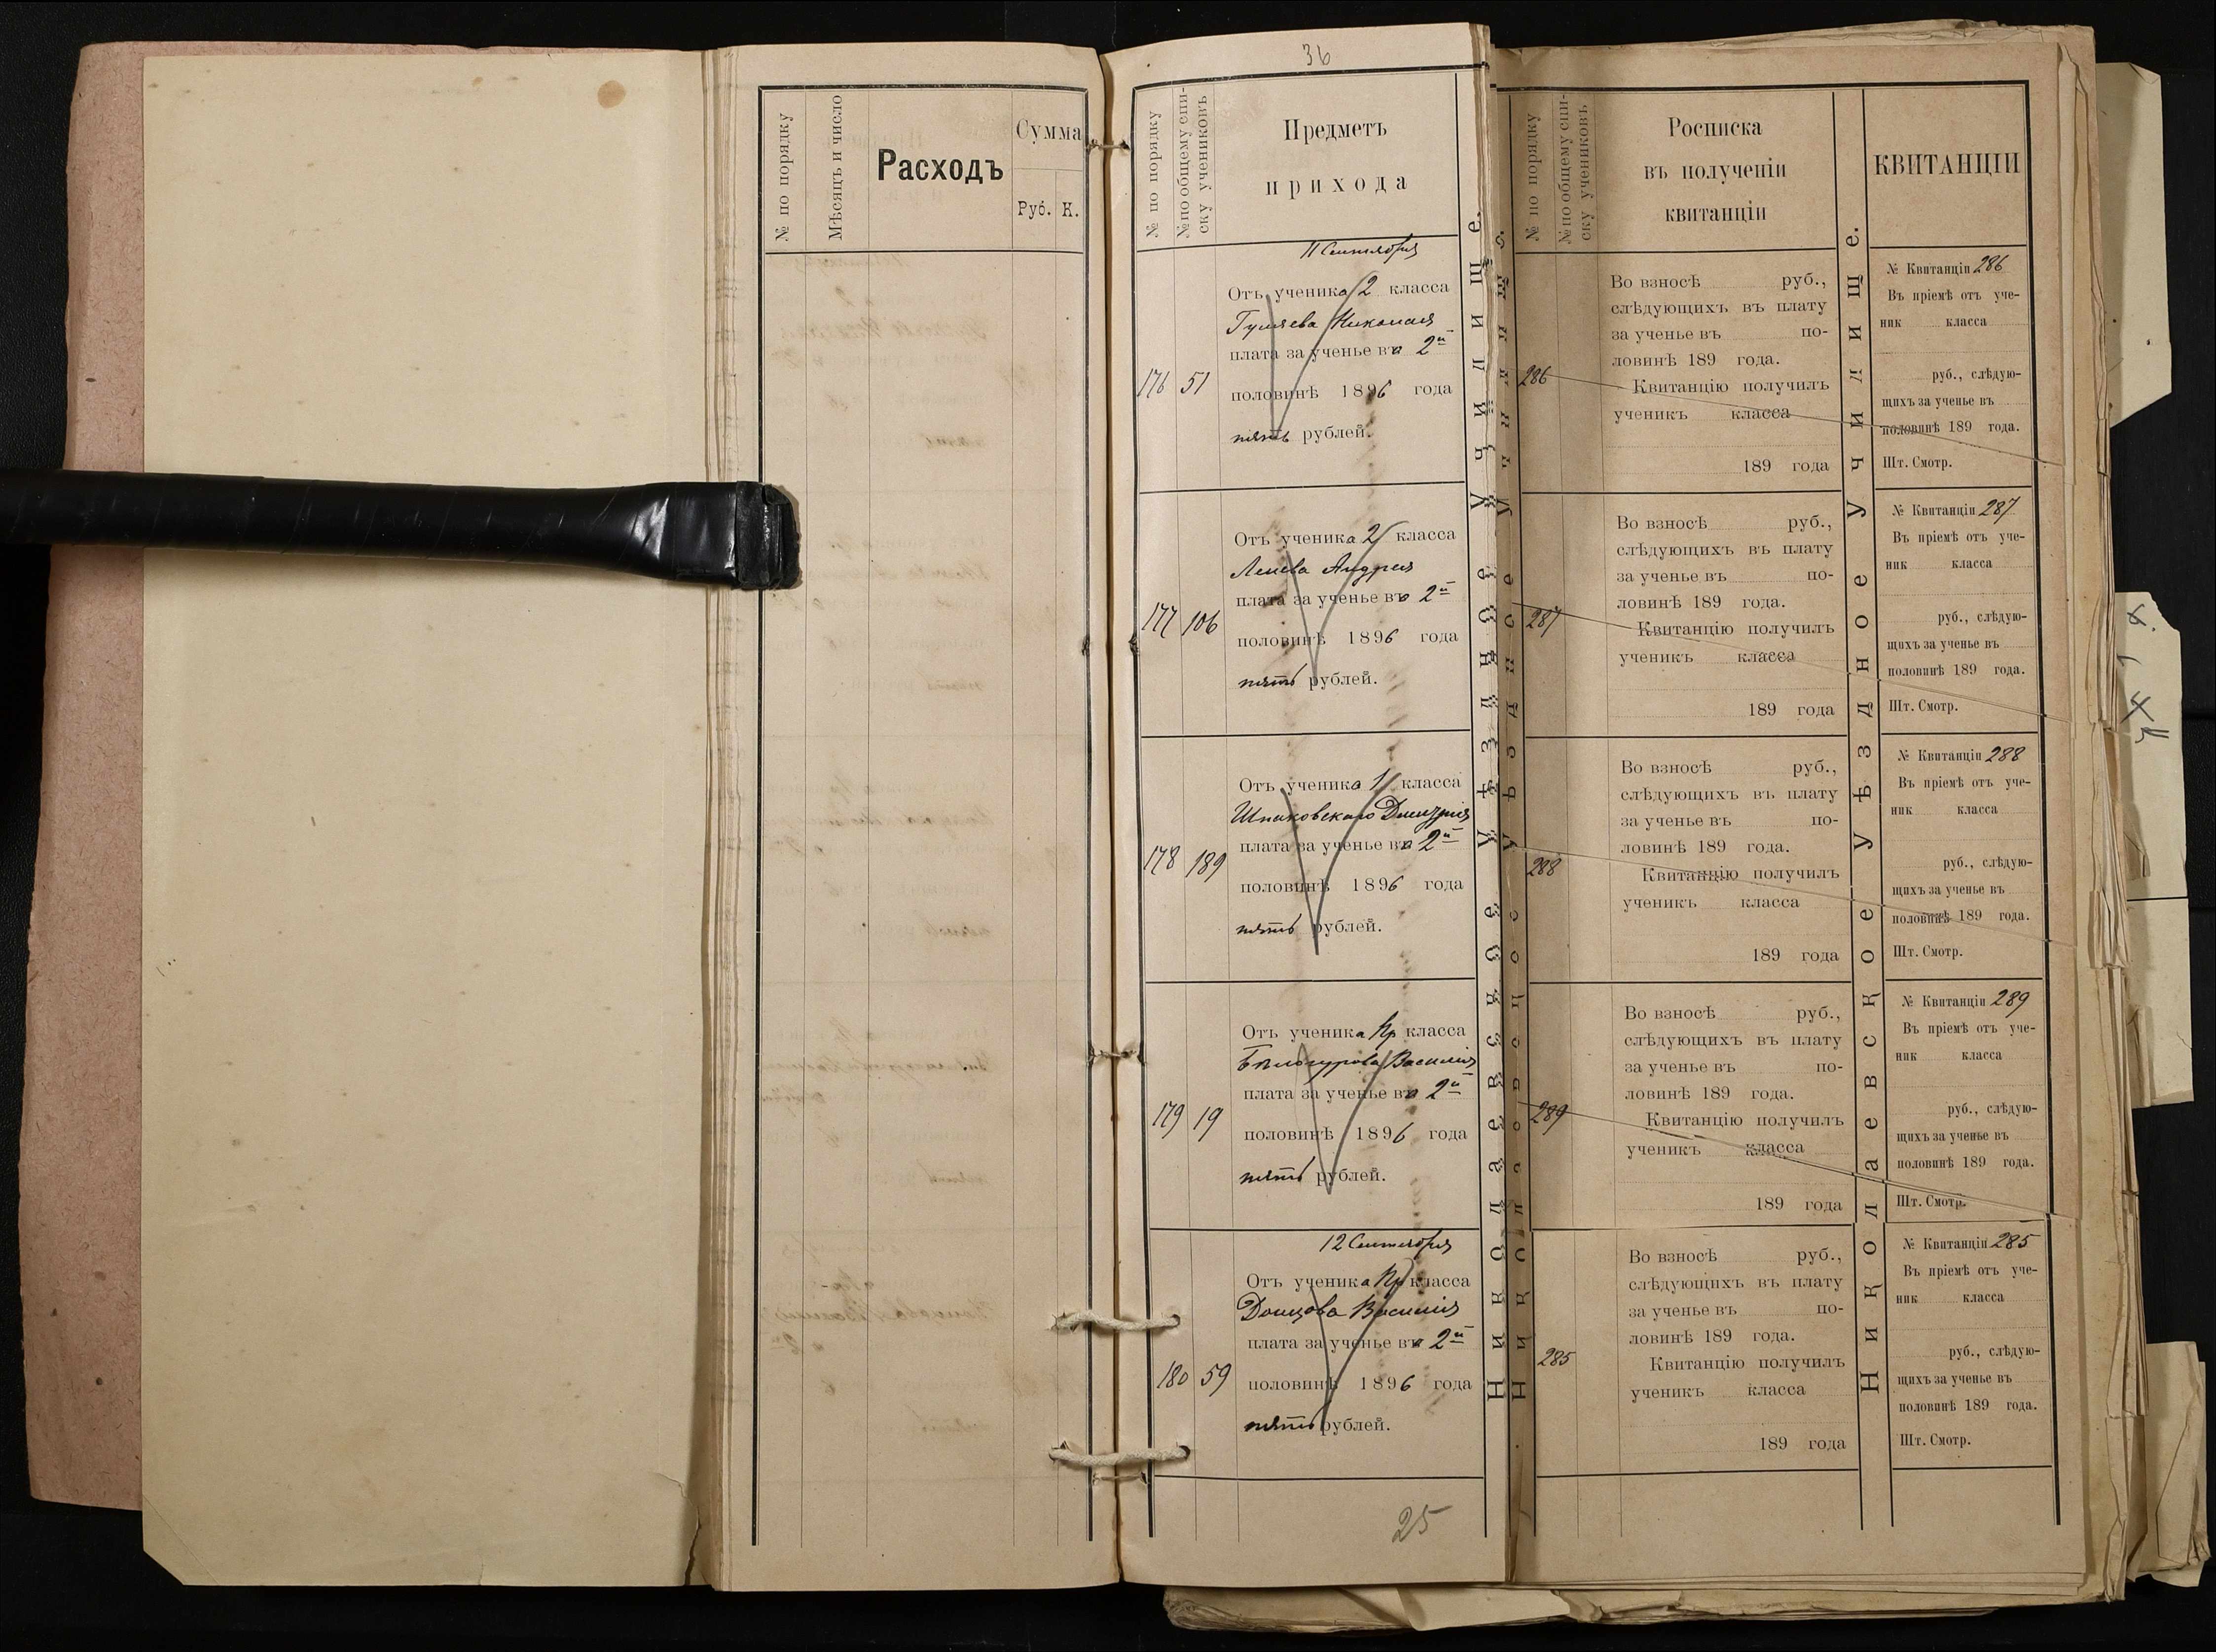 № по порядку
Мѣсяцъ и число
Расходъ
Сумма
Руб. К.
36
№ по порядку
№ по общему спи-
ску учениковъ
Предметъ
прихода
11 Сентября
Отъ ученика 2 класса
Гуляева Николая
плата за ученье во 2й
176 51
половинѣ 1896 года
пять рублей.
Отъ ученика 2 класса
Андрея
плата за ученье во 2й
177 106
половинѣ 1896 года
пять рублей.
Отъ ученика 1 класса
Шпаковскаго Дмитрія
плата за ученье во 2й
178 189
половинѣ 1896 года
пять рублей.
Отъ ученика Пр класса
Бѣлогурова Василія
плата за ученье во 2й
179 19
половинѣ 1896 года
пять рублей.
12 Сентября
Отъ ученика Пр класса
Донцова Василія
плата за ученье во 2й
180 59
половинѣ 1896 года
пять рублей.
25
Николаевское Уѣздное Училище.
№ по порядку
№ по общему спи-
ску учениковъ
Росписка
въ полученіи
квитанціи
286
Во взносѣ руб.,
слѣдующихъ въ плату
за ученье въ по-
ловинѣ 189 года.
Квитанцію получилъ
ученикъ класса
189 года
287
Во взносѣ руб.,
слѣдующихъ въ плату
за ученье въ по-
ловинѣ 189 года.
Квитанцію получилъ
ученикъ класса
189 года
288
Во взносѣ руб.,
слѣдующихъ въ плату
за ученье въ по-
ловинѣ 189 года.
Квитанцію получилъ
ученикъ класса
189 года
289
Во взносѣ руб.,
слѣдующихъ въ плату
за ученье въ по-
ловинѣ 189 года.
Квитанцію получилъ
ученикъ класса
189 года
285
Во взносѣ руб.,
слѣдующихъ въ плату
за ученье въ по-
ловинѣ 189 года.
Квитанцію получилъ
ученикъ класса
189 года
Николаевское Уѣздное Училище.
КВИТАНЦІИ
№ Квитанціи 286
Въ пріемѣ отъ уче-
ник класса
руб., слѣдую-
щихъ за ученье въ
половинѣ 189 года.
Шт. Смотр.
№ Квитанціи 287
Въ пріемѣ отъ уче-
ник класса
руб., слѣдую-
щихъ за ученье въ
половинѣ 189 года.
Шт. Смотр.
№ Квитанціи 288
Въ пріемѣ отъ уче-
ник класса
руб., слѣдую-
щихъ за ученье въ
половинѣ 189 года.
Шт. Смотр.
№ Квитанціи 289
Въ пріемѣ отъ уче-
ник класса
руб., слѣдую-
щихъ за ученье въ
половинѣ 189 года.
Шт. Смотр.
№ Квитанціи 285
Въ пріемѣ отъ уче-
ник класса
руб., слѣдую-
щихъ за ученье въ
половинѣ 189 года.
Шт. Смотр.